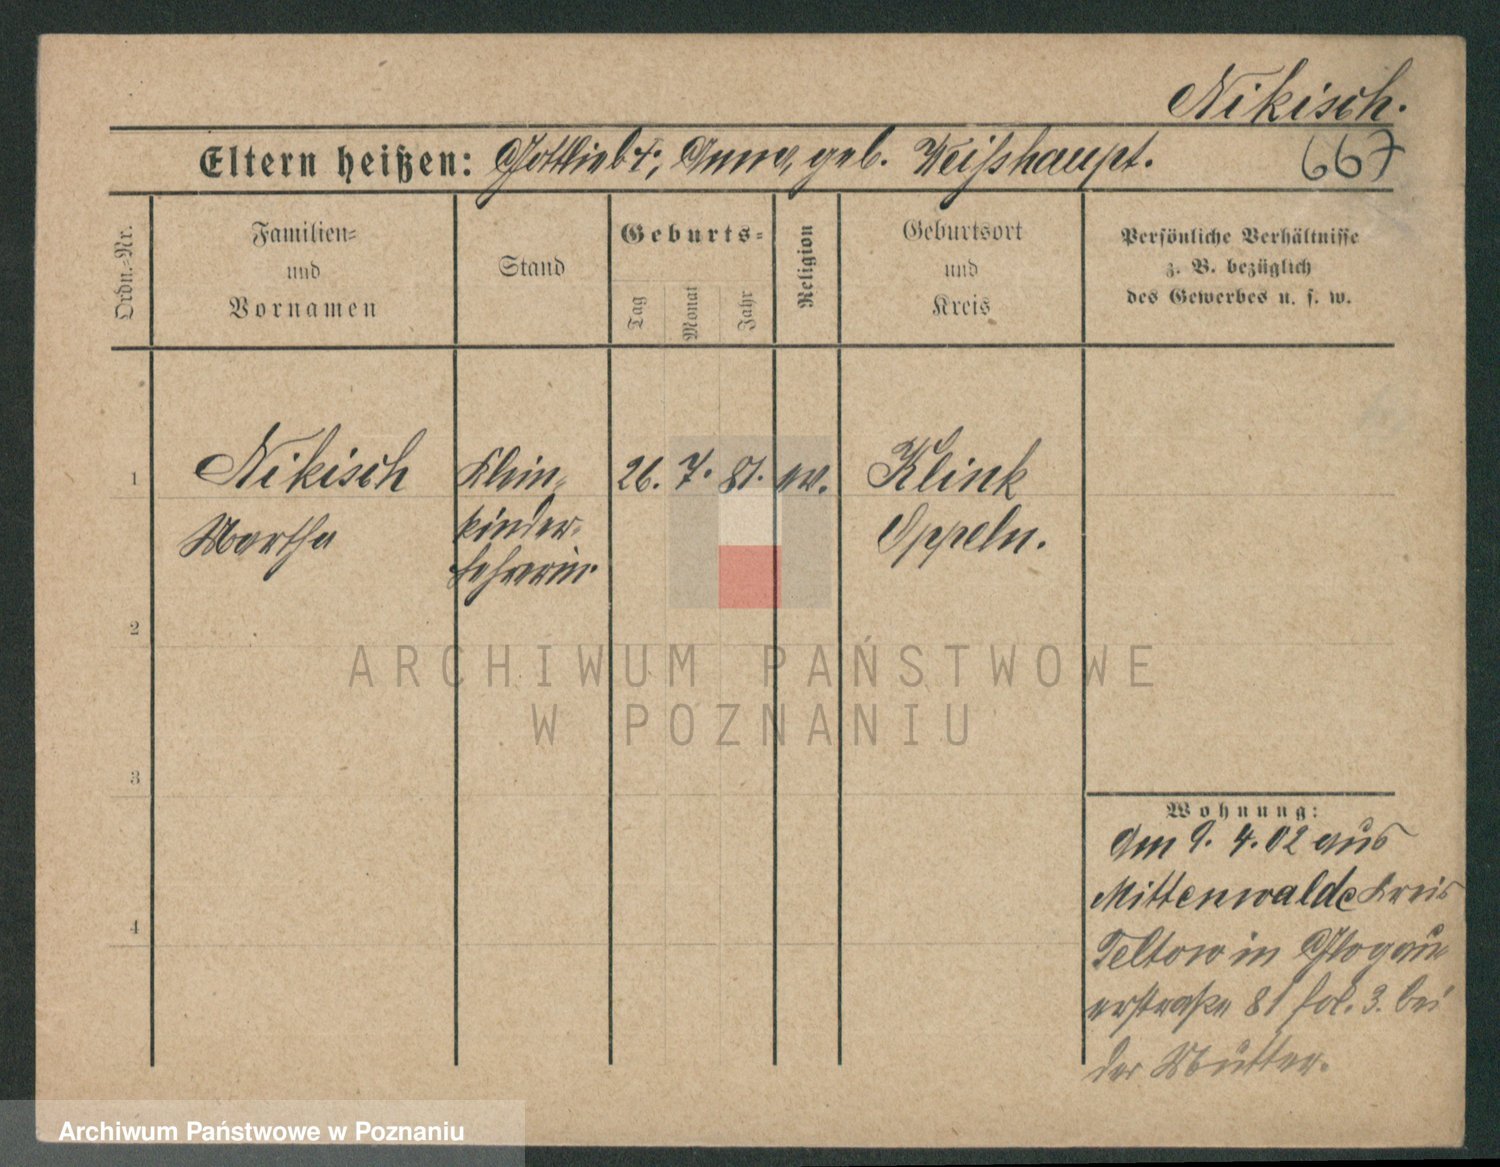 Nikisch.
Eltern heißen: Gottlieb †, Anna, geb. Weißhaupt.
667
Ordn.-Nr.
Familien-
und
Vornamen
Stand
Geburts-
Tag
Monat
Jahr
Religion
Geburtsort
und
Kreis
Persönliche Verhältnisse
z. B. bezüglich
des Gewerbes u. s. w.
1 Nikisch Klein- 26. 7. 81. ev. Klink
Martha kinder- Oppeln.
lehrerin.
2
ARCHIWUM PAŃSTWOWE
W POZNANIU
3
Wohnung:
Am 9. 4. 02 aus
Mittenwalde Kreis
4
Teltow in Glogau-
erstraße 81 fol. 3. bei
der Mutter.
Archiwum Państwowe w Poznaniu